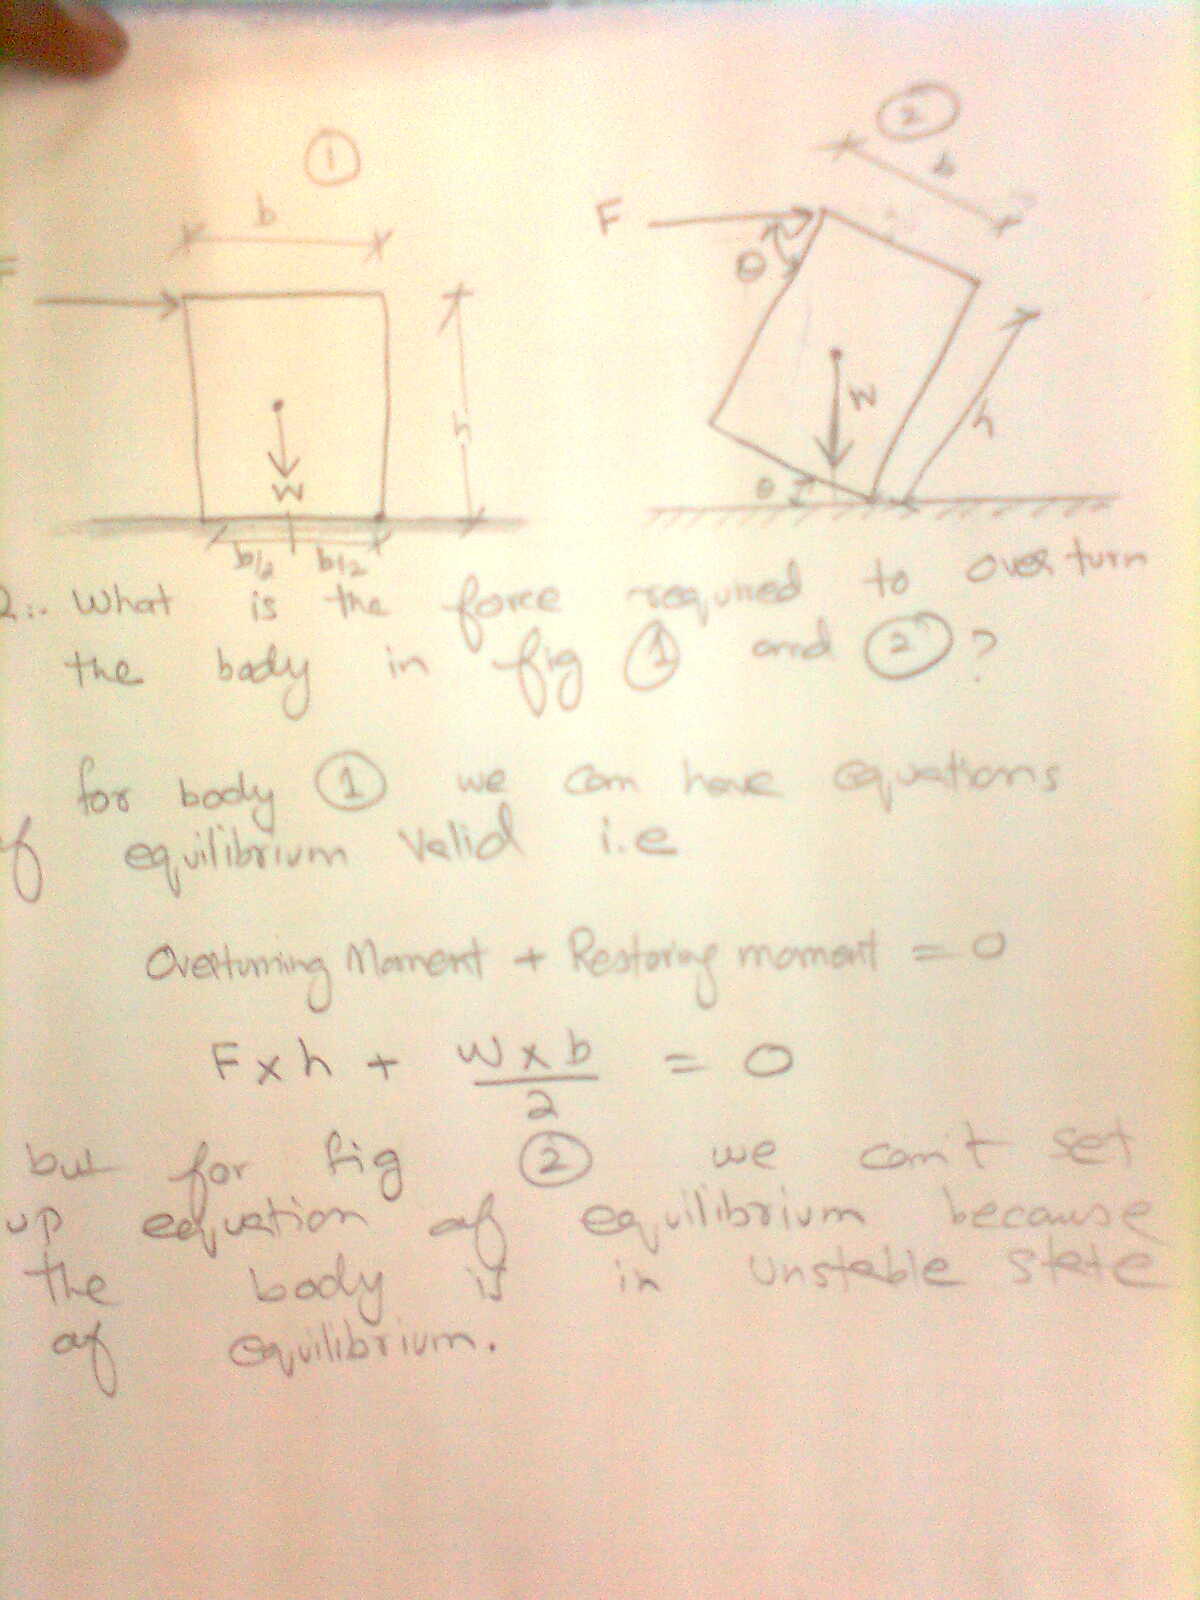 1
2
b
b
F
θ
h
W
W
h
θ
b/2 b/2
2:. What is the force required to over turn
the body in fig 1 and 2 ?
for body 1 we can have equations
of equilibrium valid i.e
Overturning Moment + Restoring moment = 0
F x h + W x b / 2 = 0
but for fig 2 we can't set
up equation of equilibrium because
the body is in unstable state
of equilibrium.